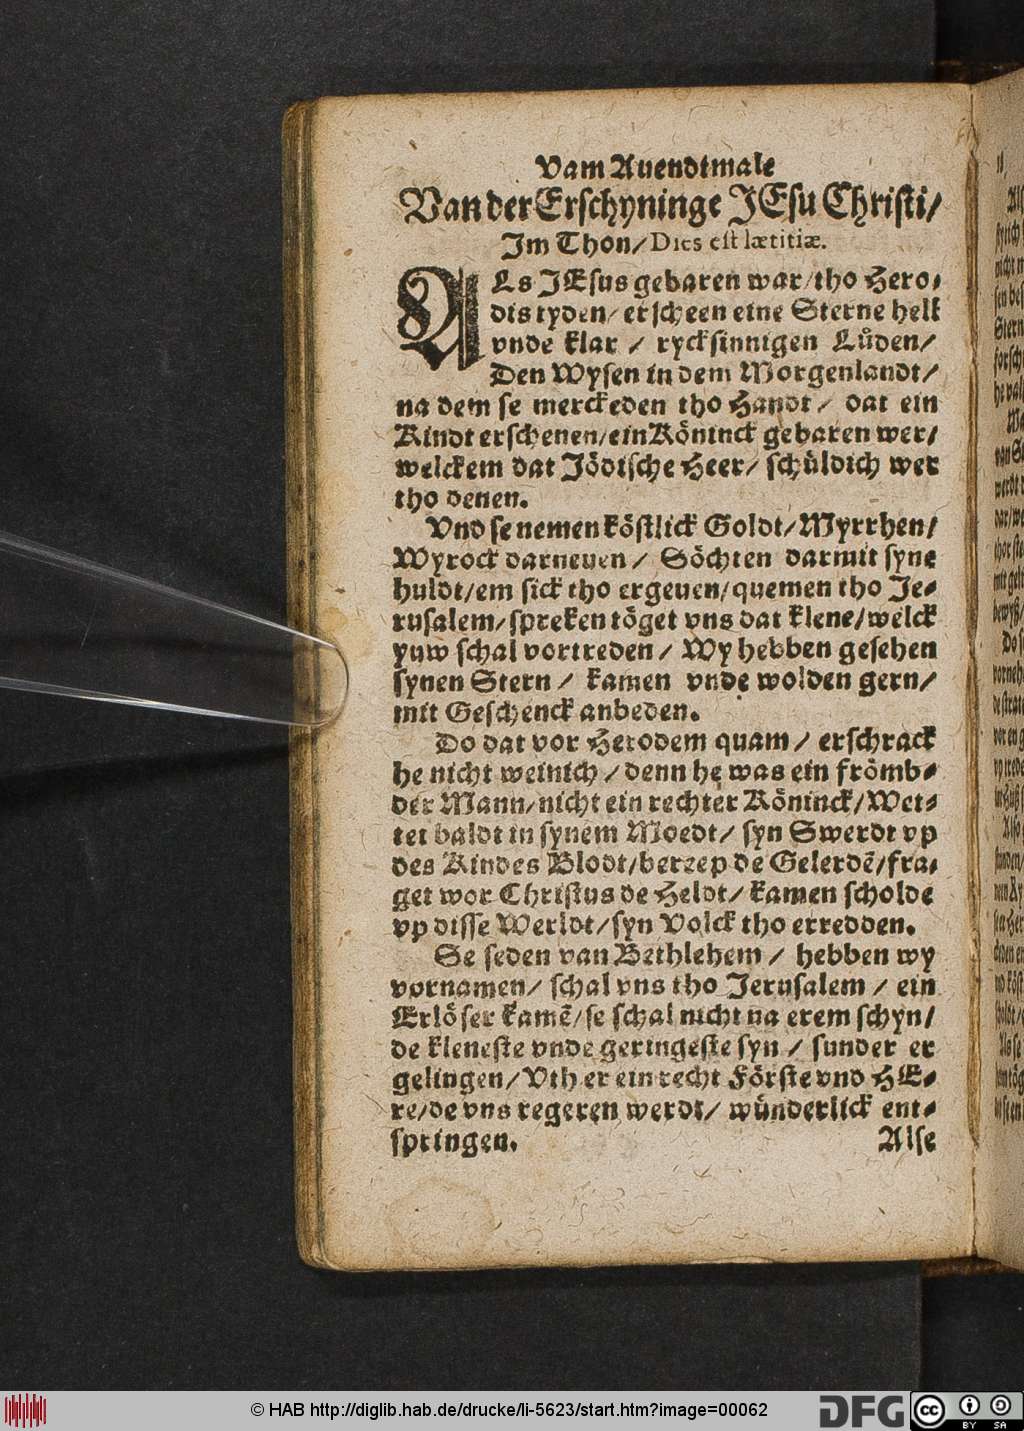 Vam Auendtmale
Van der Erschyninge JEsu Christi/
Jm Thon/ Dies est lætitiæ.
ALs JEsus gebaren war/tho Hero-
dis tyden/ erscheen eine Sterne hell
vnde klar / ryck sinnigen Lůden/
Den Wysen in dem Morgenlandt/
na dem se merckeden tho Handt/ dat ein
Kindt erschenen/ein Köninck gebaren wer/
welckem dat Jödische Heer/ schüldich wer
tho denen.
Vnd se nemen köstlick Goldt/Myrrhen/
Wyrock darneuen / Söchten darmit syne
huldt/em sick tho ergeuen/quemen tho Je-
rusalem/spreken töget vns dat klene/welck
yuw schal vortreden / Wy hebben gesehen
synen Stern / kamen vnde wolden gern/
mit Geschenck anbeden.
Do dat vor Herodem quam / erschrack
he nicht weinich / denn he was ein frömb-
der Mann/nicht ein rechter Köninck/Wet-
tet baldt in synem Moedt/ syn Swerdt vp
des Kindes Blodt/bereep de Gelerdē/fra-
get wor Christus de Heldt/ kamen scholde
vp disse Werldt/syn Volck tho erredden.
Se seden van Bethlehem / hebben wy
vornamen/ schal vns tho Jerusalem / ein
Erlöser kamē/se schal nicht na erem schyn/
de kleneste vnde geringeste syn / sunder er
gelingen/Vth er ein recht Förste vnd HE-
re/de vns regeren werdt/ wünderlick ent-
springen. Alse
© HAB http://diglib.hab.de/drucke/li-5623/start.htm?image=00062
DFG
cc
BY SA